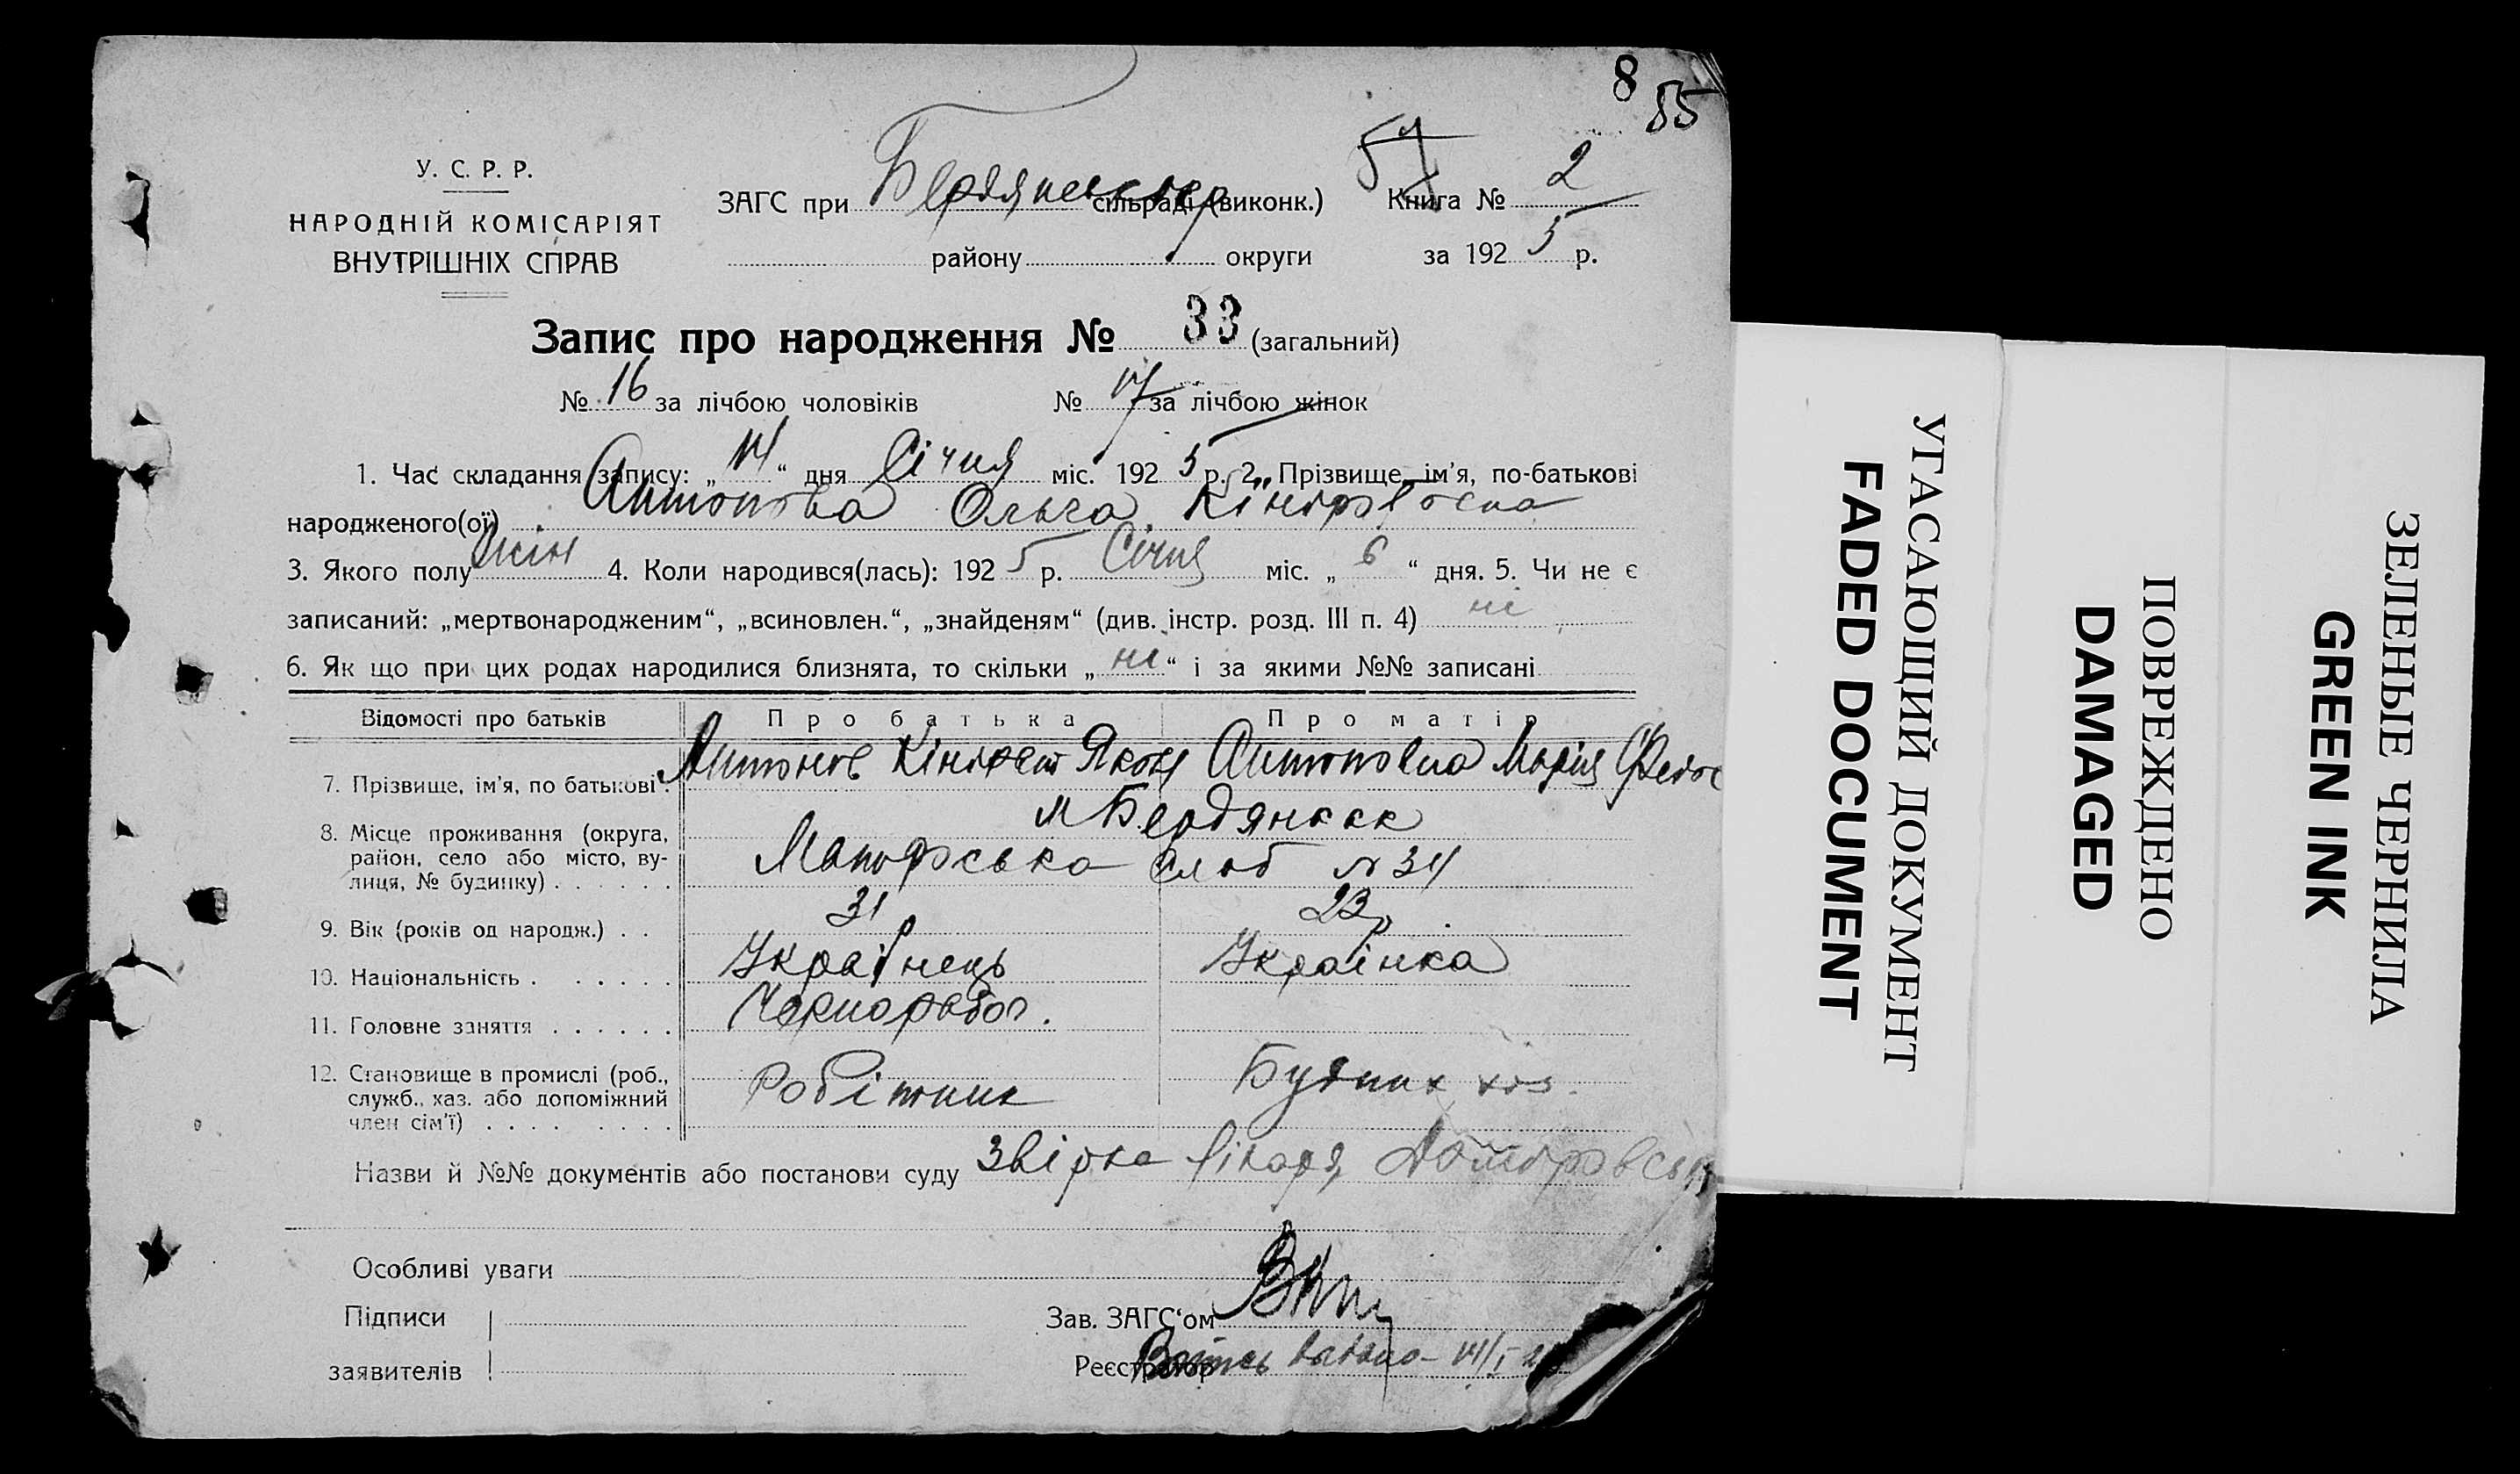 8
55
57
У. С. Р. Р.
НАРОДНІЙ КОМІСАРІЯТ
ВНУТРІШНІХ СПРАВ
ЗАГС при Бердянськ сільраді (виконк.) Книга № 2
району округи за 1925 р.
Запис про народження № 33 (загальний)
№ 16 за лічбою чоловіків № 17 за лічбою жінок
1. Час складання запису: „14“ дня Січня міс. 1925 р. 2. Прізвище, ім'я, по-батькові
народженого(ої) Антонова Ольга
3. Якого полу жін 4. Коли народився(лась): 1925 р. Січня міс. „6“ дня. 5. Чи не є
записаний: „мертвонародженим“, „всиновлен.“, „знайденям“ (див. інстр. розд. III п. 4) ні
6. Як що при цих родах народилися близнята, то скільки „ні“ і за якими №№ записані
Відомості про батьків Про батька Про матір
7. Прізвище, ім'я, по батькові. Антонов Кіндрат Яков Антонова Марія Федос
м Бердянськ
8. Місце проживання (округа,
район, село або місто, вулиця, № будинку) . . . . . . слоб № 34
9. Вік (років од народж.) . . 31 р 23 р
10. Національність . . . . . . Українець Українка
11. Головне заняття . . . . . . Чорнороб.
12. Становище в промислі (роб.,
служб., хаз. або допоміжний
член сім'ї) . . . . . . . . Робітник Будинк хоз.
Назви й №№ документів або постанови суду лікаря
Особливі уваги
Підписи
заявителів
Зав. ЗАГС'ом
Реєстратор Випись видано 14/I
УГАСАЮЩИЙ ДОКУМЕНТ
FADED DOCUMENT
ПОВРЕЖДЕНО
DAMAGED
ЗЕЛЕНЫЕ ЧЕРНИЛА
GREEN INK